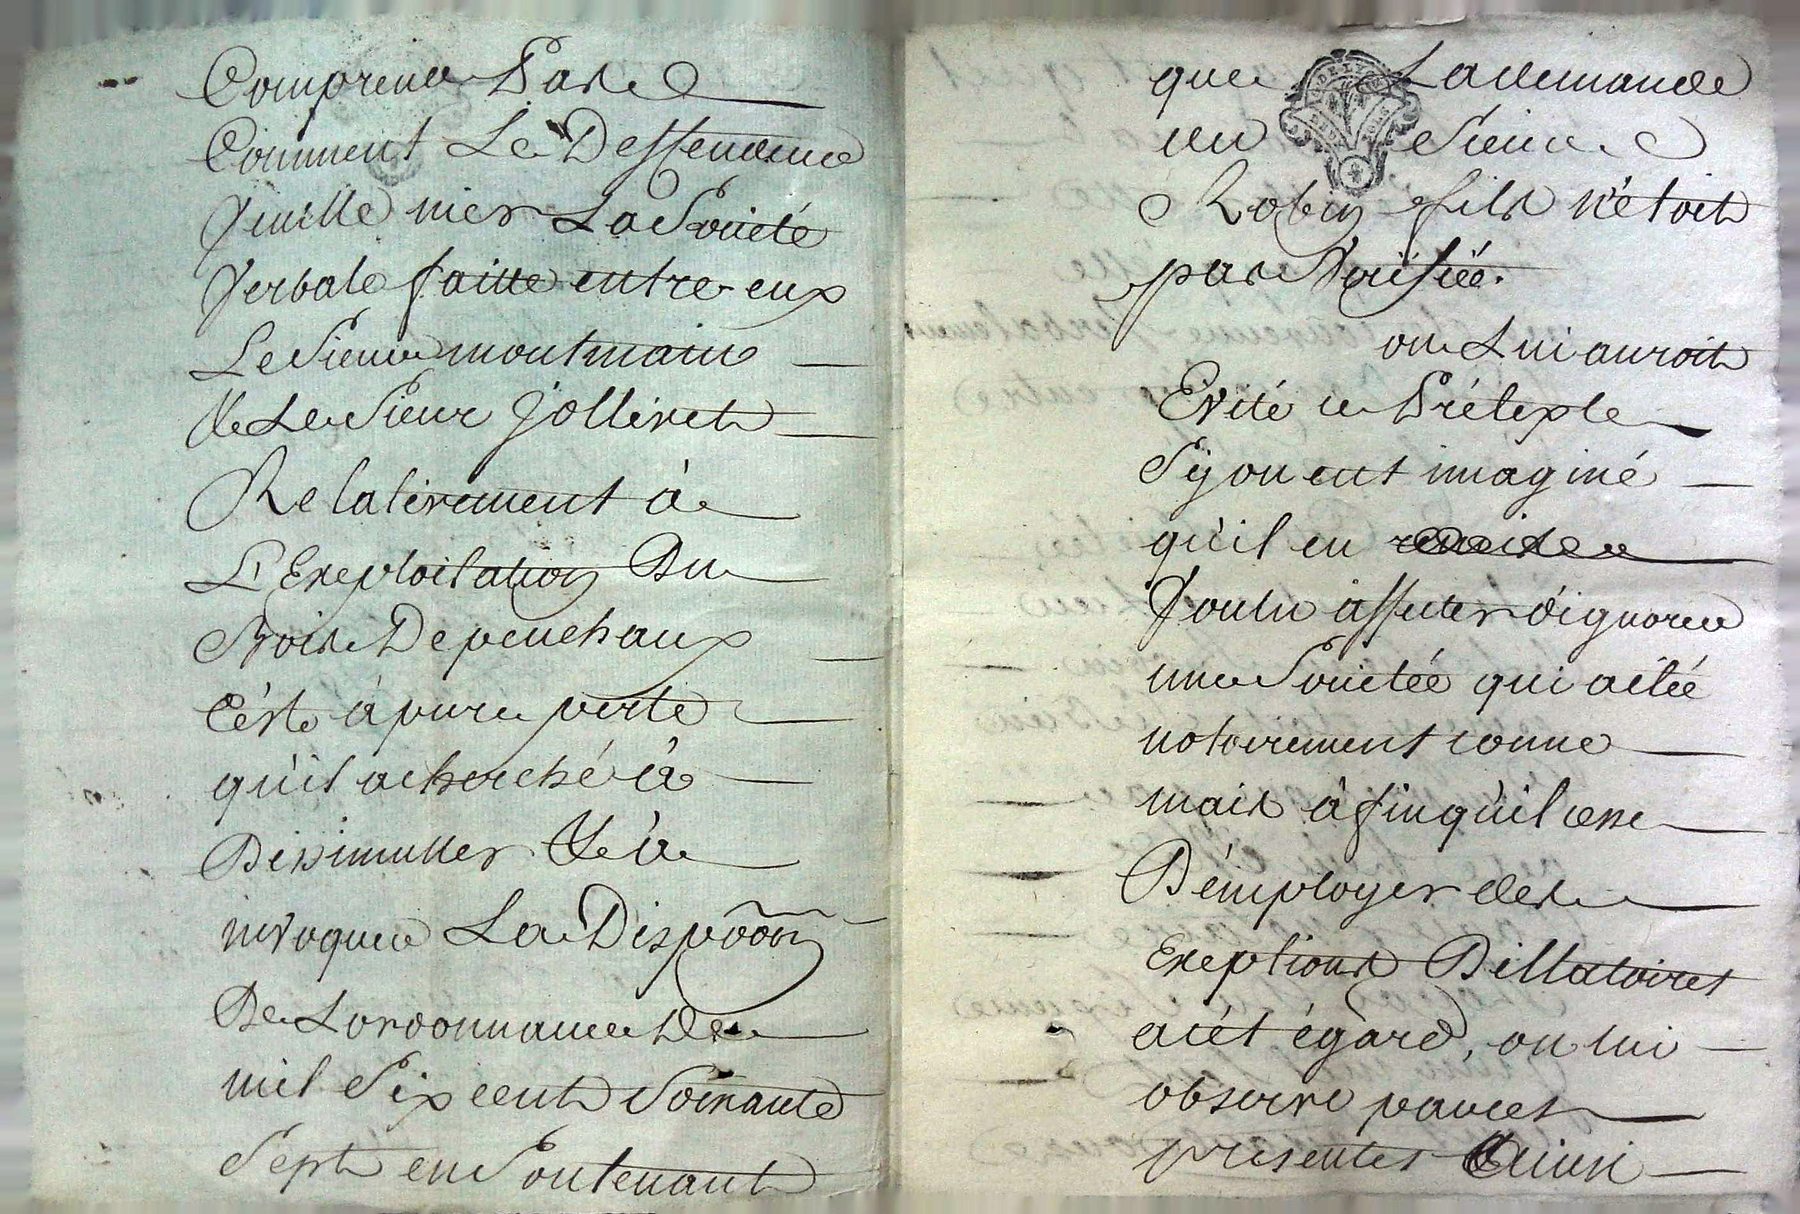 Comprend Pas
Comment Le Deffendeur
Veuille nier La Societé
Verbale faitte entre eux
Le Sieur montmain
Et Le Sieur Jolliret
Relativement à
L'Exploitation Du
Bois De peuchaux
C'est à pure perte
qu'il a cherché à
Dissimuller Et à
invoquer La Dispoõn
De Lordonnance De
mil Six cent Soixante
Sept en Soutenant
que La demande
du Sieur
Robin fils n'étoit
pas Vérifiée.
on Lui auroit
Evité ce Prétexte
Sÿ on eut imaginé
qu'il eu
Voulu affecter d'ignorer
une Societée qui a étée
notoirement connue
mais à fin qu'il cesse
D'émployer des
Exeptions Dillatoires
a cét égard, on lui
observe par ces
présentes